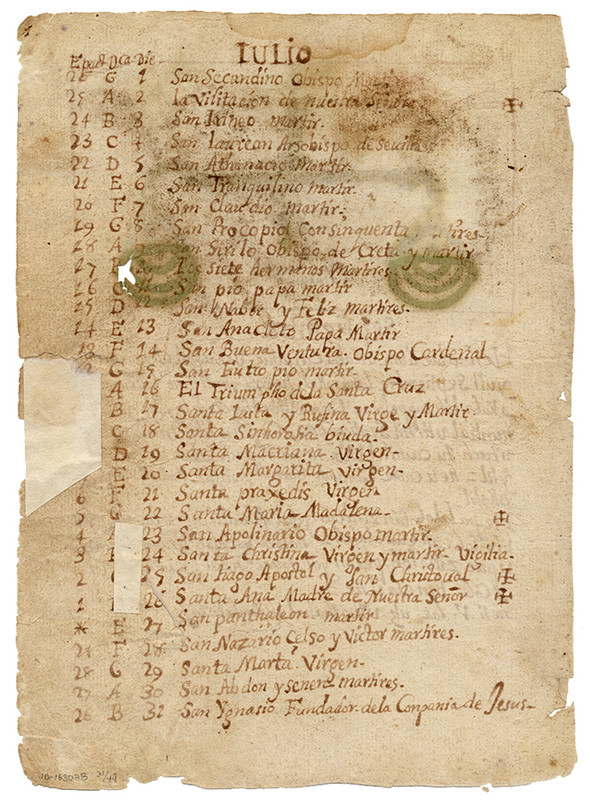 IULIO
Epact. Dca. Die-
26 G 1 San Secundino Obispo
25 A 2 la Vilitacion de nuestra Señora ✠
24 B 3 San Irineo martir.
23 C 4 San Laurean Arsobispo de Sevilla
22 D 5 San Athanacio Martir.
21 E 6 San Tranquilino martir.
20 F 7 San Claudio martir.
19 G 8 San Procopio Consinquenta
18 A San Sirilo Obispo de Creta y Martir
17 Los siete hermanos Martires
16 San pio papa martir
15 D 12 San Nabor y Feliz martires.
14 E 13 San Ana Cleto Papa Martir
13 F 14 San Buena Ventura. Obispo Cardenal
G 15 San Eutro pio martir.
A 16 El Trium pho de la Santa Cruz
B 17 Santa Iusta y Rufina Virge y Martir.
C 18 Santa Sinhorosa biuda.
D 19 Santa Macriana Virgen-
E 20 Santa Margarita virgen-
6 F 21 Santa praxedis Virgen
5 G 22 Santa Maria Madalena- ✠
4 A 23 San Apolinario Obispo martir.
3 B 24 Santa Christina Virgen y martir Vigilia.
2 25 San tiago Apostol y San Christoval ✠
1 26 Santa Ana Madre de Nuestra Señor ✠
* E 27 San panthaleon martir
29 F 28 San Nazario Celso y Victor martires.
28 G 29 Santa Marta Virgen-
27 A 30 San Abdon y senen martires.
26 B 31 San Ygnasio Fundador de la Conpania de Jesus-
10-153078 31/49